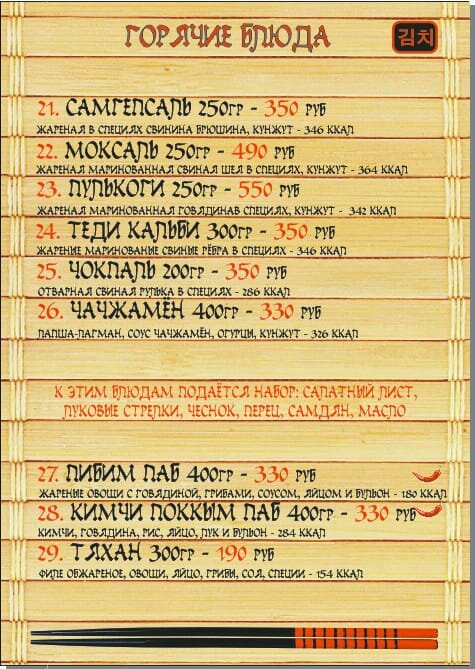 ГОРЯЧИЕ БЛЮДА
김치
21. САМГЕПСАЛЬ 250ГР - 350 РУБ
ЖАРЕНАЯ В СПЕЦИЯХ СВИНИНА БРЮШИНА, КУНЖУТ - 346 ККАЛ
22. МОКСАЛЬ 250ГР - 490 РУБ
ЖАРЕНАЯ МАРИНОВАННАЯ СВИНАЯ ШЕЯ В СПЕЦИЯХ, КУНЖУТ - 364 ККАЛ
23. ПУЛЬКОГИ 250ГР - 550 РУБ
ЖАРЕНАЯ МАРИНОВАННАЯ ГОВЯДИНАВ СПЕЦИЯХ, КУНЖУТ - 342 ККАЛ
24. ТЕДИ КАЛЬБИ 300ГР - 350 РУБ
ЖАРЕНЫЕ МАРИНОВАНЫЕ СВИНЫЕ РЁБРА В СПЕЦИЯХ - 346 ККАЛ
25. ЧОКПАЛЬ 200ГР - 350 РУБ
ОТВАРНАЯ СВИНАЯ РУЛЬКА В СПЕЦИЯХ - 286 ККАЛ
26. ЧАЧЖАМЁН 400ГР - 330 РУБ
ЛАПША-ЛАГМАН, СОУС ЧАЧЖАМЁН, ОГУРЦЫ, КУНЖУТ - 326 ККАЛ
К ЭТИМ БЛЮДАМ ПОДАЁТСЯ НАБОР: САЛАТНЫЙ ЛИСТ,
ЛУКОВЫЕ СТРЕЛКИ, ЧЕСНОК, ПЕРЕЦ, САМДЯН, МАСЛО
27. ПИБИМ ПАБ 400ГР - 330 РУБ
ЖАРЕНЫЕ ОВОЩИ С ГОВЯДИНОЙ, ГРИБАМИ, СОУСОМ, ЯЙЦОМ И БУЛЬОН - 180 ККАЛ
28. КИМЧИ ПОККЫМ ПАБ 400ГР - 330 РУБ
КИМЧИ, ГОВЯДИНА, РИС, ЯЙЦО, ЛУК И БУЛЬОН - 284 ККАЛ
29. ТЯХАН 300ГР - 190 РУБ
ФИЛЕ ОБЖАРЕНОЕ, ОВОЩИ, ЯЙЦО, ГРИБЫ, СОЯ, СПЕЦИИ - 154 ККАЛ